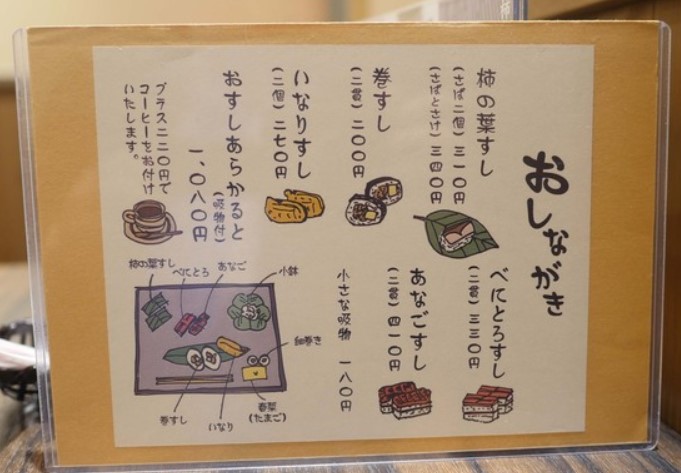 おしながき
柿の葉すし
(さば二個) 三一〇円
(さばとさけ) 三四〇円
巻すし
(二貫) 二〇〇円
いなりすし
(二個) 二七〇円
おすしあらかると
(吸物付)
一、〇八〇円
プラス二二〇円で
コーヒーをお付け
いたします。
べにとろすし
(二貫) 三三〇円
あなごすし
(二貫) 四一〇円
小さな吸物 一八〇円
柿の葉すし
べにとろ
あなご
小鉢
細巻き
巻すし
いなり
春菜
(たまご)